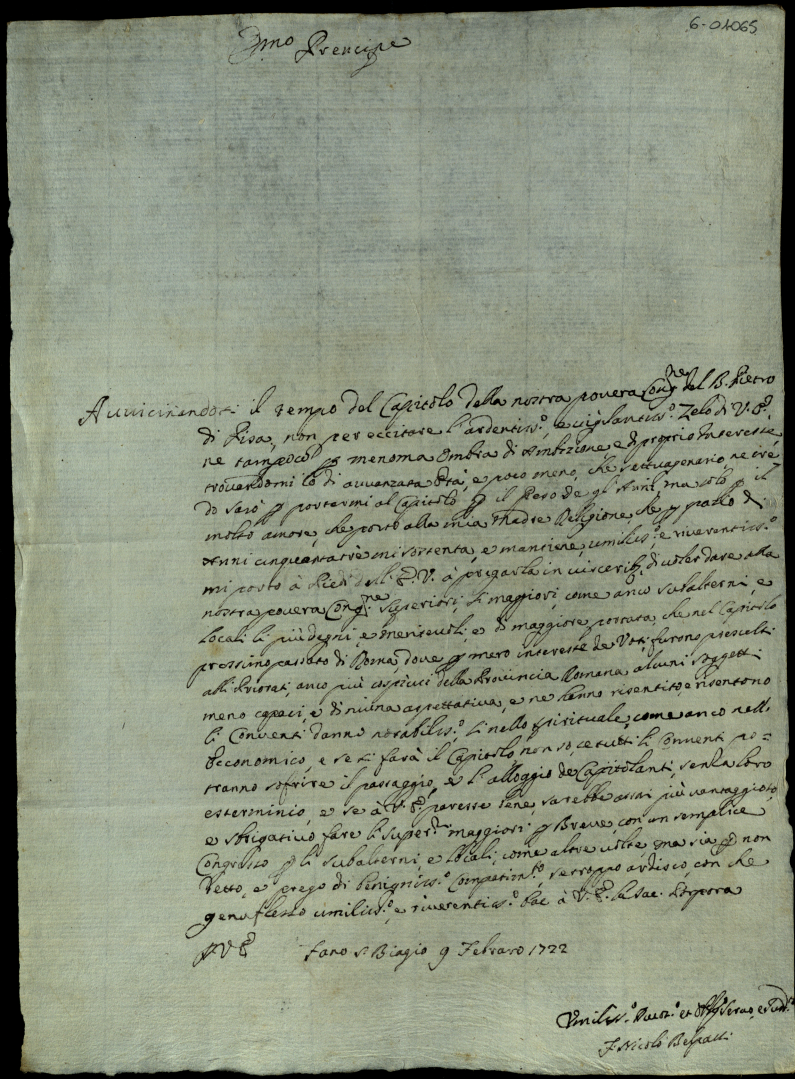 6-04065
Em̃o Prencipe
Avvicinandosi il tempo del Capitolo della nostra povera Congne del B. Pietro
di Pisa, non per eccitare l'ardentiss.o, e vigilantiss.o Zelo di V. E.
ne tampoco p menoma Ombra di Ambizione e di proprio Interesse,
trovandomi io di avvanzata Età, e poco meno, che settuagenario, ne
do sarò p portarmi al Capitolo p il Peso de gli Anni, ma solo p il
molto amore, che porto alla mia Madre Religione, che p spatio di
Anni cinquantatrè mi sostenta, e mantiene, umiliss.o, e riverentiss.o
mi porto à Piedi dell' E. V. à pregarla in visceribs, di voler dare alla
nostra povera Congne Superiori, si maggiori, come anco subalterni, e
locali li più degni, e meritevoli, e di maggiore portata, che nel Capitolo
prossimo passato di Roma, dove p mero interesse de Voti furono prescelti
alli Priorati, anco più cospicui della Provincia Romana alcuni soggetti
meno capaci, e di niuna aspettativa, e ne hanno risentito, e risentono
li Conventi danno notabiliss.o, si nello spirituale, come anco nell'
Oeconomico, e se si farà il Capitolo, non so, se tutti li Conventi po=
tranno sofrire il passaggio, e l'alloggio de Capitolanti, senza loro
esterminio, e se à V. E. paresse bene, sarebbe assai più vantaggioso,
e sbrigativo fare li Superri maggiori p Breve, con un semplice
Congresso p li subalterni, e locali, come altre volte, ma sia p non
detto, e prego di benigniss.o Compatimto, se troppo ardisco, con che
genuflesso umiliss.o, e riverentiss.o bac à V. E. la Sac. Porpora
D V E Fano S. Biagio 9 Febraro 1722
Umiliss.o Devot.o et Obblg.o Servo, e
F Nicolò